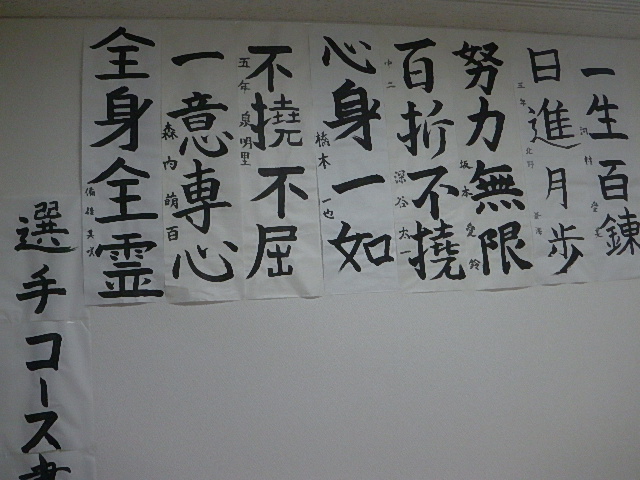 一生百錬
日進月歩
五年
努力無限
坂本愛鈴
百折不撓
中二 深谷太一
心身一如
橋本一也
不撓不屈
五年 泉明里
一意専心
森内萌百
全身全霊
選手コース書